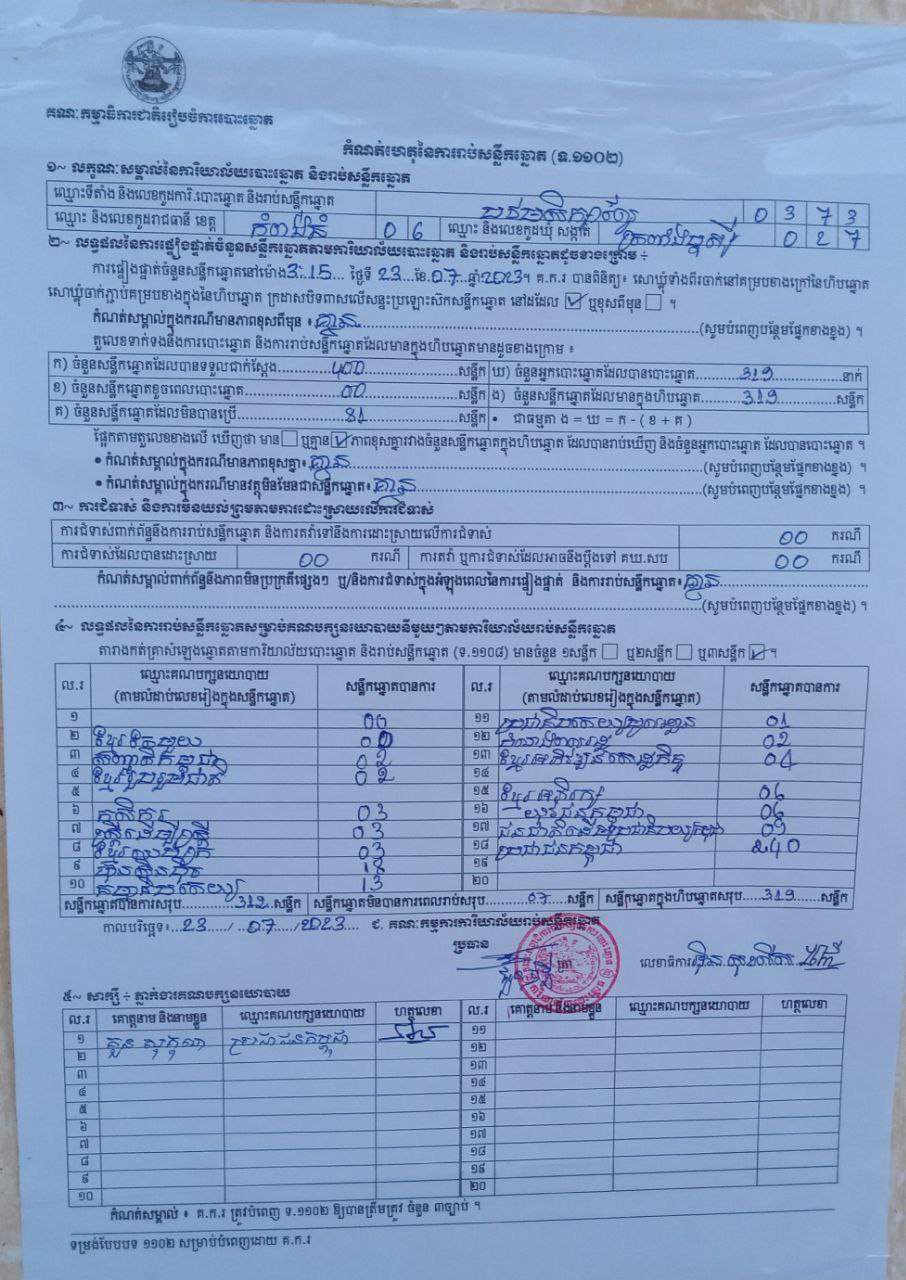 គណៈកម្មាធិការជាតិរៀបចំការបោះឆ្នោត
កំណត់ហេតុនៃការរាប់សន្លឹកឆ្នោត (ទ.១១០២)
១~ លក្ខណៈសម្គាល់នៃការិយាល័យបោះឆ្នោត និងរាប់សន្លឹកឆ្នោត
ឈ្មោះទីតាំង និងលេខកូដការិ.បោះឆ្នោត និងរាប់សន្លឹកឆ្នោត 0 3 7 3
ឈ្មោះ និងលេខកូដរាជធានី ខេត្ត កំពង់ធំ 0 6 ឈ្មោះ និងលេខកូដឃុំ សង្កាត់ 0 2 7
២~ លទ្ធផលនៃការផ្ទៀងផ្ទាត់ចំនួនសន្លឹកឆ្នោតតាមការិយាល័យបោះឆ្នោត និងរាប់សន្លឹកឆ្នោតដូចខាងក្រោម ÷
ការផ្ទៀងផ្ទាត់ចំនួនសន្លឹកឆ្នោតនៅម៉ោង 3:15 ថ្ងៃទី 23 ខែ 07 ឆ្នាំ 2023។ គ.ក.រ បានពិនិត្យ៖ សោឃ្លុំទាំងពីរចាក់នៅគម្របខាងក្រៅនៃហិបឆ្នោត
សោឃ្លុំចាក់ភ្ជាប់គម្របខាងក្នុងនៃហិបឆ្នោត ក្រដាសបិទពាសលើសន្ទះប្រឡោះស៊កសន្លឹកឆ្នោត នៅដដែល ☑ ឬខុសពីមុន ☐ ។
កំណត់សម្គាល់ក្នុងករណីមានភាពខុសពីមុន ៖ គ្មាន (សូមបំពេញបន្ថែមផ្នែកខាងខ្នង) ។
តួលេខទាក់ទងនឹងការបោះឆ្នោត និងការរាប់សន្លឹកឆ្នោតដែលមានក្នុងហិបឆ្នោតមានដូចខាងក្រោម ៖
ក) ចំនួនសន្លឹកឆ្នោតដែលបានទទួលជាក់ស្តែង 400 សន្លឹក ឃ) ចំនួនអ្នកបោះឆ្នោតដែលបានបោះឆ្នោត 319 នាក់
ខ) ចំនួនសន្លឹកឆ្នោតខូចពេលបោះឆ្នោត 00 សន្លឹក ង) ចំនួនសន្លឹកឆ្នោតដែលមានក្នុងហិបឆ្នោត 319 សន្លឹក
គ) ចំនួនសន្លឹកឆ្នោតដែលមិនបានប្រើ 81 សន្លឹក • ជាធម្មតា ង = ឃ = ក - ( ខ + គ )
ផ្អែកតាមតួលេខខាងលើ ឃើញថា មាន ☐ ឬគ្មាន ☑ ភាពខុសគ្នារវាងចំនួនសន្លឹកឆ្នោតក្នុងហិបឆ្នោត ដែលបានរាប់ឃើញ និងចំនួនអ្នកបោះឆ្នោត ដែលបានបោះឆ្នោត ។
• កំណត់សម្គាល់ក្នុងករណីមានភាពខុសគ្នា៖ គ្មាន (សូមបំពេញបន្ថែមផ្នែកខាងខ្នង) ។
• កំណត់សម្គាល់ក្នុងករណីមានវត្ថុមិនមែនជាសន្លឹកឆ្នោត៖ គ្មាន (សូមបំពេញបន្ថែមផ្នែកខាងខ្នង) ។
៣~ ការជំទាស់ និងការមិនយល់ព្រមតាមការដោះស្រាយលើការជំទាស់
ការជំទាស់ពាក់ព័ន្ធនឹងការរាប់សន្លឹកឆ្នោត និងការតវ៉ាទៅនឹងការដោះស្រាយលើការជំទាស់ 00 ករណី
ការជំទាស់ដែលបានដោះស្រាយ 00 ករណី ការតវ៉ា ឬការជំទាស់ដែលអាចនឹងប្តឹងទៅ គឃ.សប 00 ករណី
កំណត់សម្គាល់ពាក់ព័ន្ធនឹងភាពមិនប្រក្រតីផ្សេងៗ ឬ/និងការជំទាស់ក្នុងអំឡុងពេលនៃការផ្ទៀងផ្ទាត់ និងការរាប់សន្លឹកឆ្នោត៖ គ្មាន
(សូមបំពេញបន្ថែមផ្នែកខាងខ្នង) ។
៤~ លទ្ធផលនៃការរាប់សន្លឹកឆ្នោតសម្រាប់គណបក្សនយោបាយនីមួយៗតាមការិយាល័យរាប់សន្លឹកឆ្នោត
តារាងកត់ត្រាសំឡេងឆ្នោតតាមការិយាល័យបោះឆ្នោត និងរាប់សន្លឹកឆ្នោត (ទ.១១០៨) មានចំនួន ១សន្លឹក ☐ ឬ២សន្លឹក ☐ ឬ៣សន្លឹក ☑ ។
ល.រ ឈ្មោះគណបក្សនយោបាយ (តាមលំដាប់លេខរៀងក្នុងសន្លឹកឆ្នោត) សន្លឹកឆ្នោតបានការ ល.រ ឈ្មោះគណបក្សនយោបាយ (តាមលំដាប់លេខរៀងក្នុងសន្លឹកឆ្នោត) សន្លឹកឆ្នោតបានការ
១ 00 ១១ 01
២ ខ្មែរតែមួយ 00 ១២ 02
៣ 02 ១៣ ខ្មែរអភិវឌ្ឍន៍សេដ្ឋកិច្ច 04
៤ ខ្មែររួបរួមជាតិ 02 ១៤
៥ ១៥ 06
៦ កសិករ 03 ១៦ យុវជនកម្ពុជា 06
៧ ស្ត្រីដើម្បីស្ត្រី 03 ១៧ 01
៨ 03 ១៨ ប្រជាជនកម្ពុជា 240
៩ ហ្វ៊ុនស៊ិនប៉ិច 18 ១៩
១០ 13 ២០
សន្លឹកឆ្នោតបានការសរុប 312 សន្លឹក សន្លឹកឆ្នោតមិនបានការពេលរាប់សរុប 07 សន្លឹក សន្លឹកឆ្នោតក្នុងហិបឆ្នោតសរុប 319 សន្លឹក
កាលបរិច្ឆេទ៖ 23 / 07 / 2023 ជ. គណៈកម្មការការិយាល័យរាប់សន្លឹកឆ្នោត
ប្រធាន
លេខាធិការ
៥~ សាក្សី ÷ ភ្នាក់ងារគណបក្សនយោបាយ
ល.រ គោត្តនាម និងនាមខ្លួន ឈ្មោះគណបក្សនយោបាយ ហត្ថលេខា ល.រ គោត្តនាម និងនាមខ្លួន ឈ្មោះគណបក្សនយោបាយ ហត្ថលេខា
១ ប្រជាជនកម្ពុជា ១១
២ ១២
៣ ១៣
៤ ១៤
៥ ១៥
៦ ១៦
៧ ១៧
៨ ១៨
៩ ១៩
១០ ២០
កំណត់សម្គាល់ ៖ គ.ក.រ ត្រូវបំពេញ ទ.១១០២ ឱ្យបានត្រឹមត្រូវ ចំនួន ៣ច្បាប់ ។
ទម្រង់បែបបទ ១១០២ សម្រាប់បំពេញដោយ គ.ក.រ